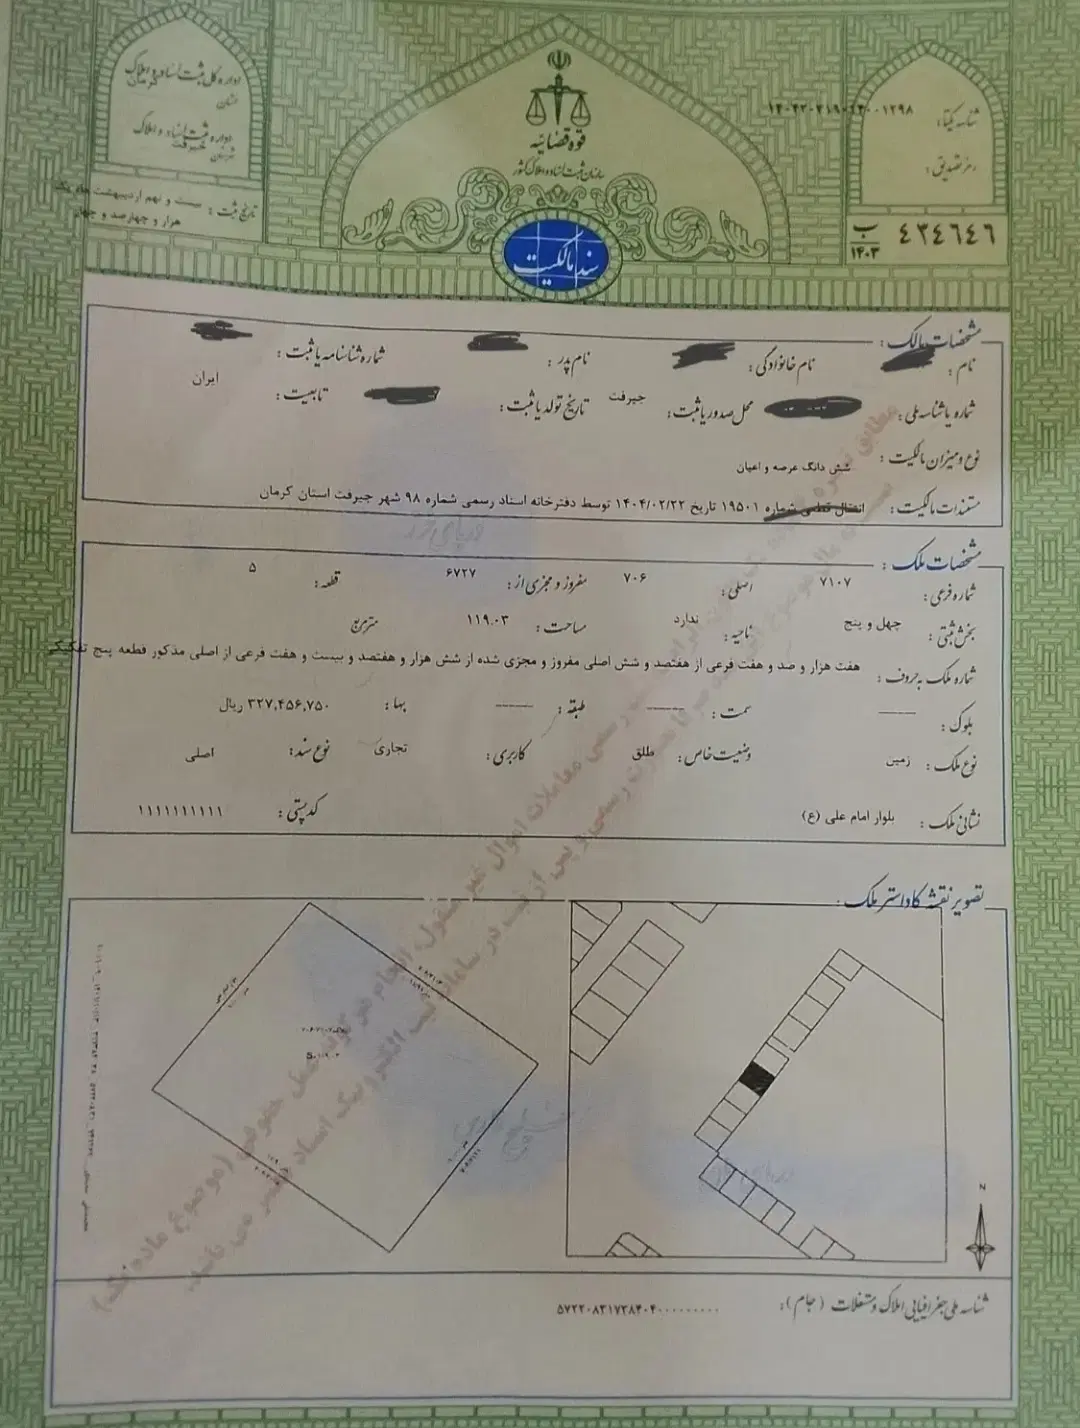 اداره کل ثبت اسناد و املاک
استان کرمان
اداره ثبت اسناد و املاک
شهرستان جیرفت
تاریخ ثبت : بیست و نهم اردیبهشت ماه یک
هزار و چهارصد و چهار
قوه قضائیه
سازمان ثبت اسناد و املاک کشور
سند مالکیت
شناسه یکتا:
رمز تصدیق :
ب
۱۴۰۳
۴۳۴۶۴۶
مشخصات مالک :
نام : نام خانوادگی : نام پدر : شماره شناسنامه یا ثبت :
شماره یا شناسه ملی : محل صدور یا ثبت : جیرفت تاریخ تولد یا ثبت : تابعیت : ایران
نوع و میزان مالکیت : شش دانگ عرصه و اعیان
مستندات مالکیت : انتقال قطعی شماره ۱۹۵۰۱ تاریخ ۱۴۰۴/۰۲/۲۲ توسط دفترخانه اسناد رسمی شماره ۹۸ شهر جیرفت استان کرمان
مشخصات ملک :
شماره فرعی : ۷۱۰۷ اصلی : ۷۰۶ مفروز و مجزی از : ۶۷۲۷ قطعه : ۵
بخش ثبتی : چهل و پنج ناحیه : ندارد مساحت : ۱۱۹.۰۳ متر مربع
شماره ملک به حروف : هفت هزار و صد و هفت فرعی از هفتصد و شش اصلی مفروز و مجزی شده از شش هزار و هفتصد و بیست و هفت فرعی از اصلی مذکور قطعه پنج تفکیکی
بلوک : ——— سمت : ——— طبقه : ——— بها : ۳۲۷,۴۵۶,۷۵۰ ریال
نوع ملک : زمین وضعیت خاص : طلق کاربری : تجاری نوع سند : اصلی
نشانی ملک : بلوار امام علی (ع) کدپستی : ۱۱۱۱۱۱۱۱۱۱
تصویر نقشه کاداستر ملک :
N
شناسه ملی جغرافیایی املاک و مستغلات (جام):